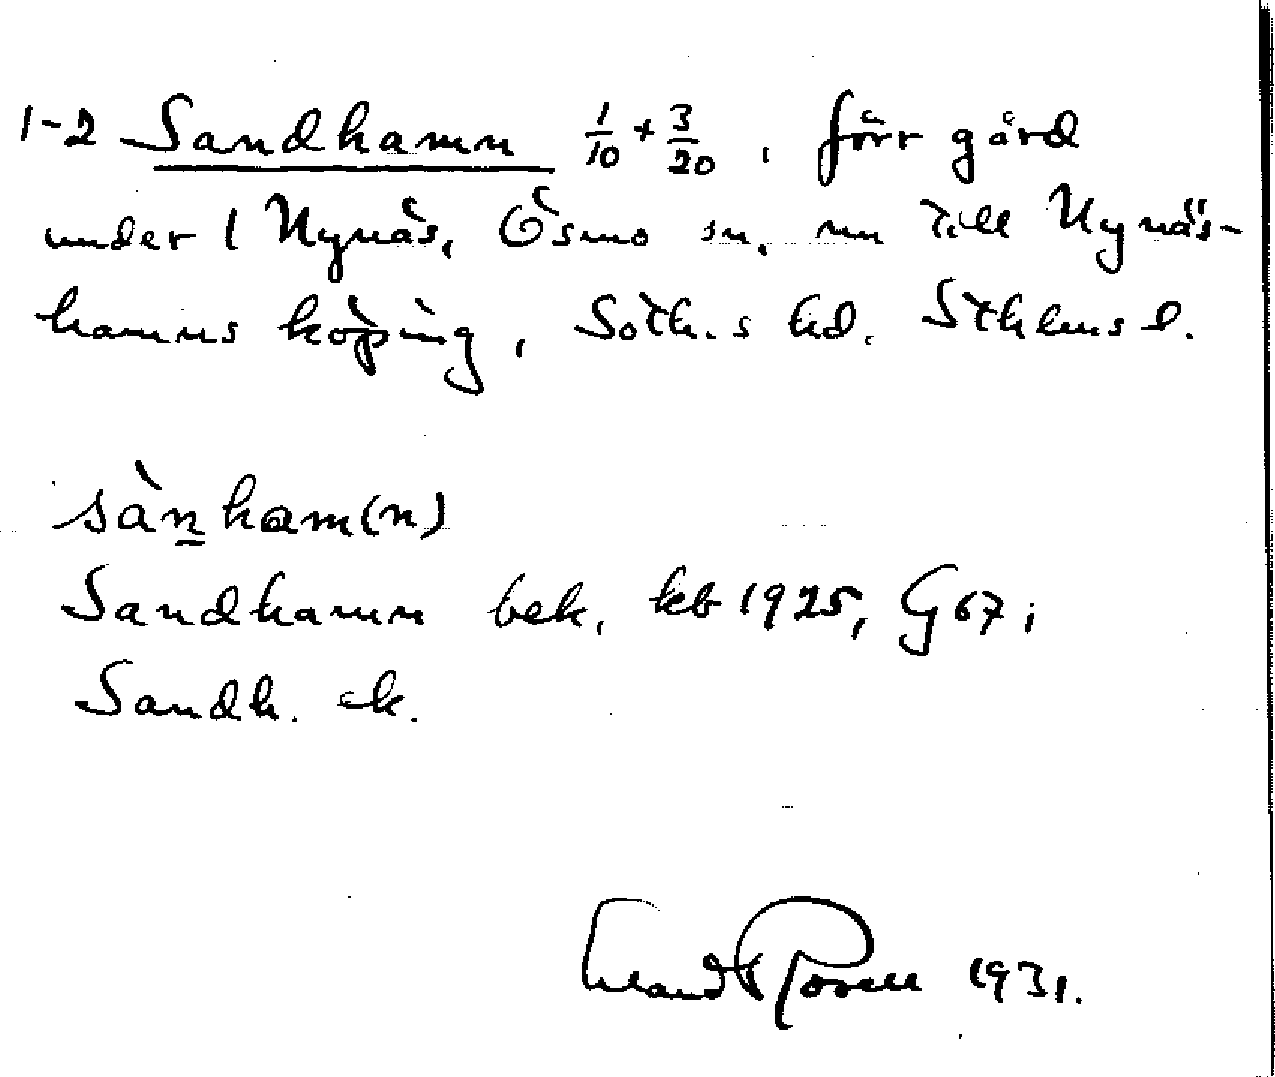 1-2 Sandhamn 1/10 + 3/20, förr gård
under 1 Nynäs, Ösmo sn, nu till Nynäs-
hamns köping, Soth.s hd. Sthlms l.
sàn̲ham(n)
Sandhamn bek. kb 1925, G 67;
Sandh. ek.
Rosell 1931.